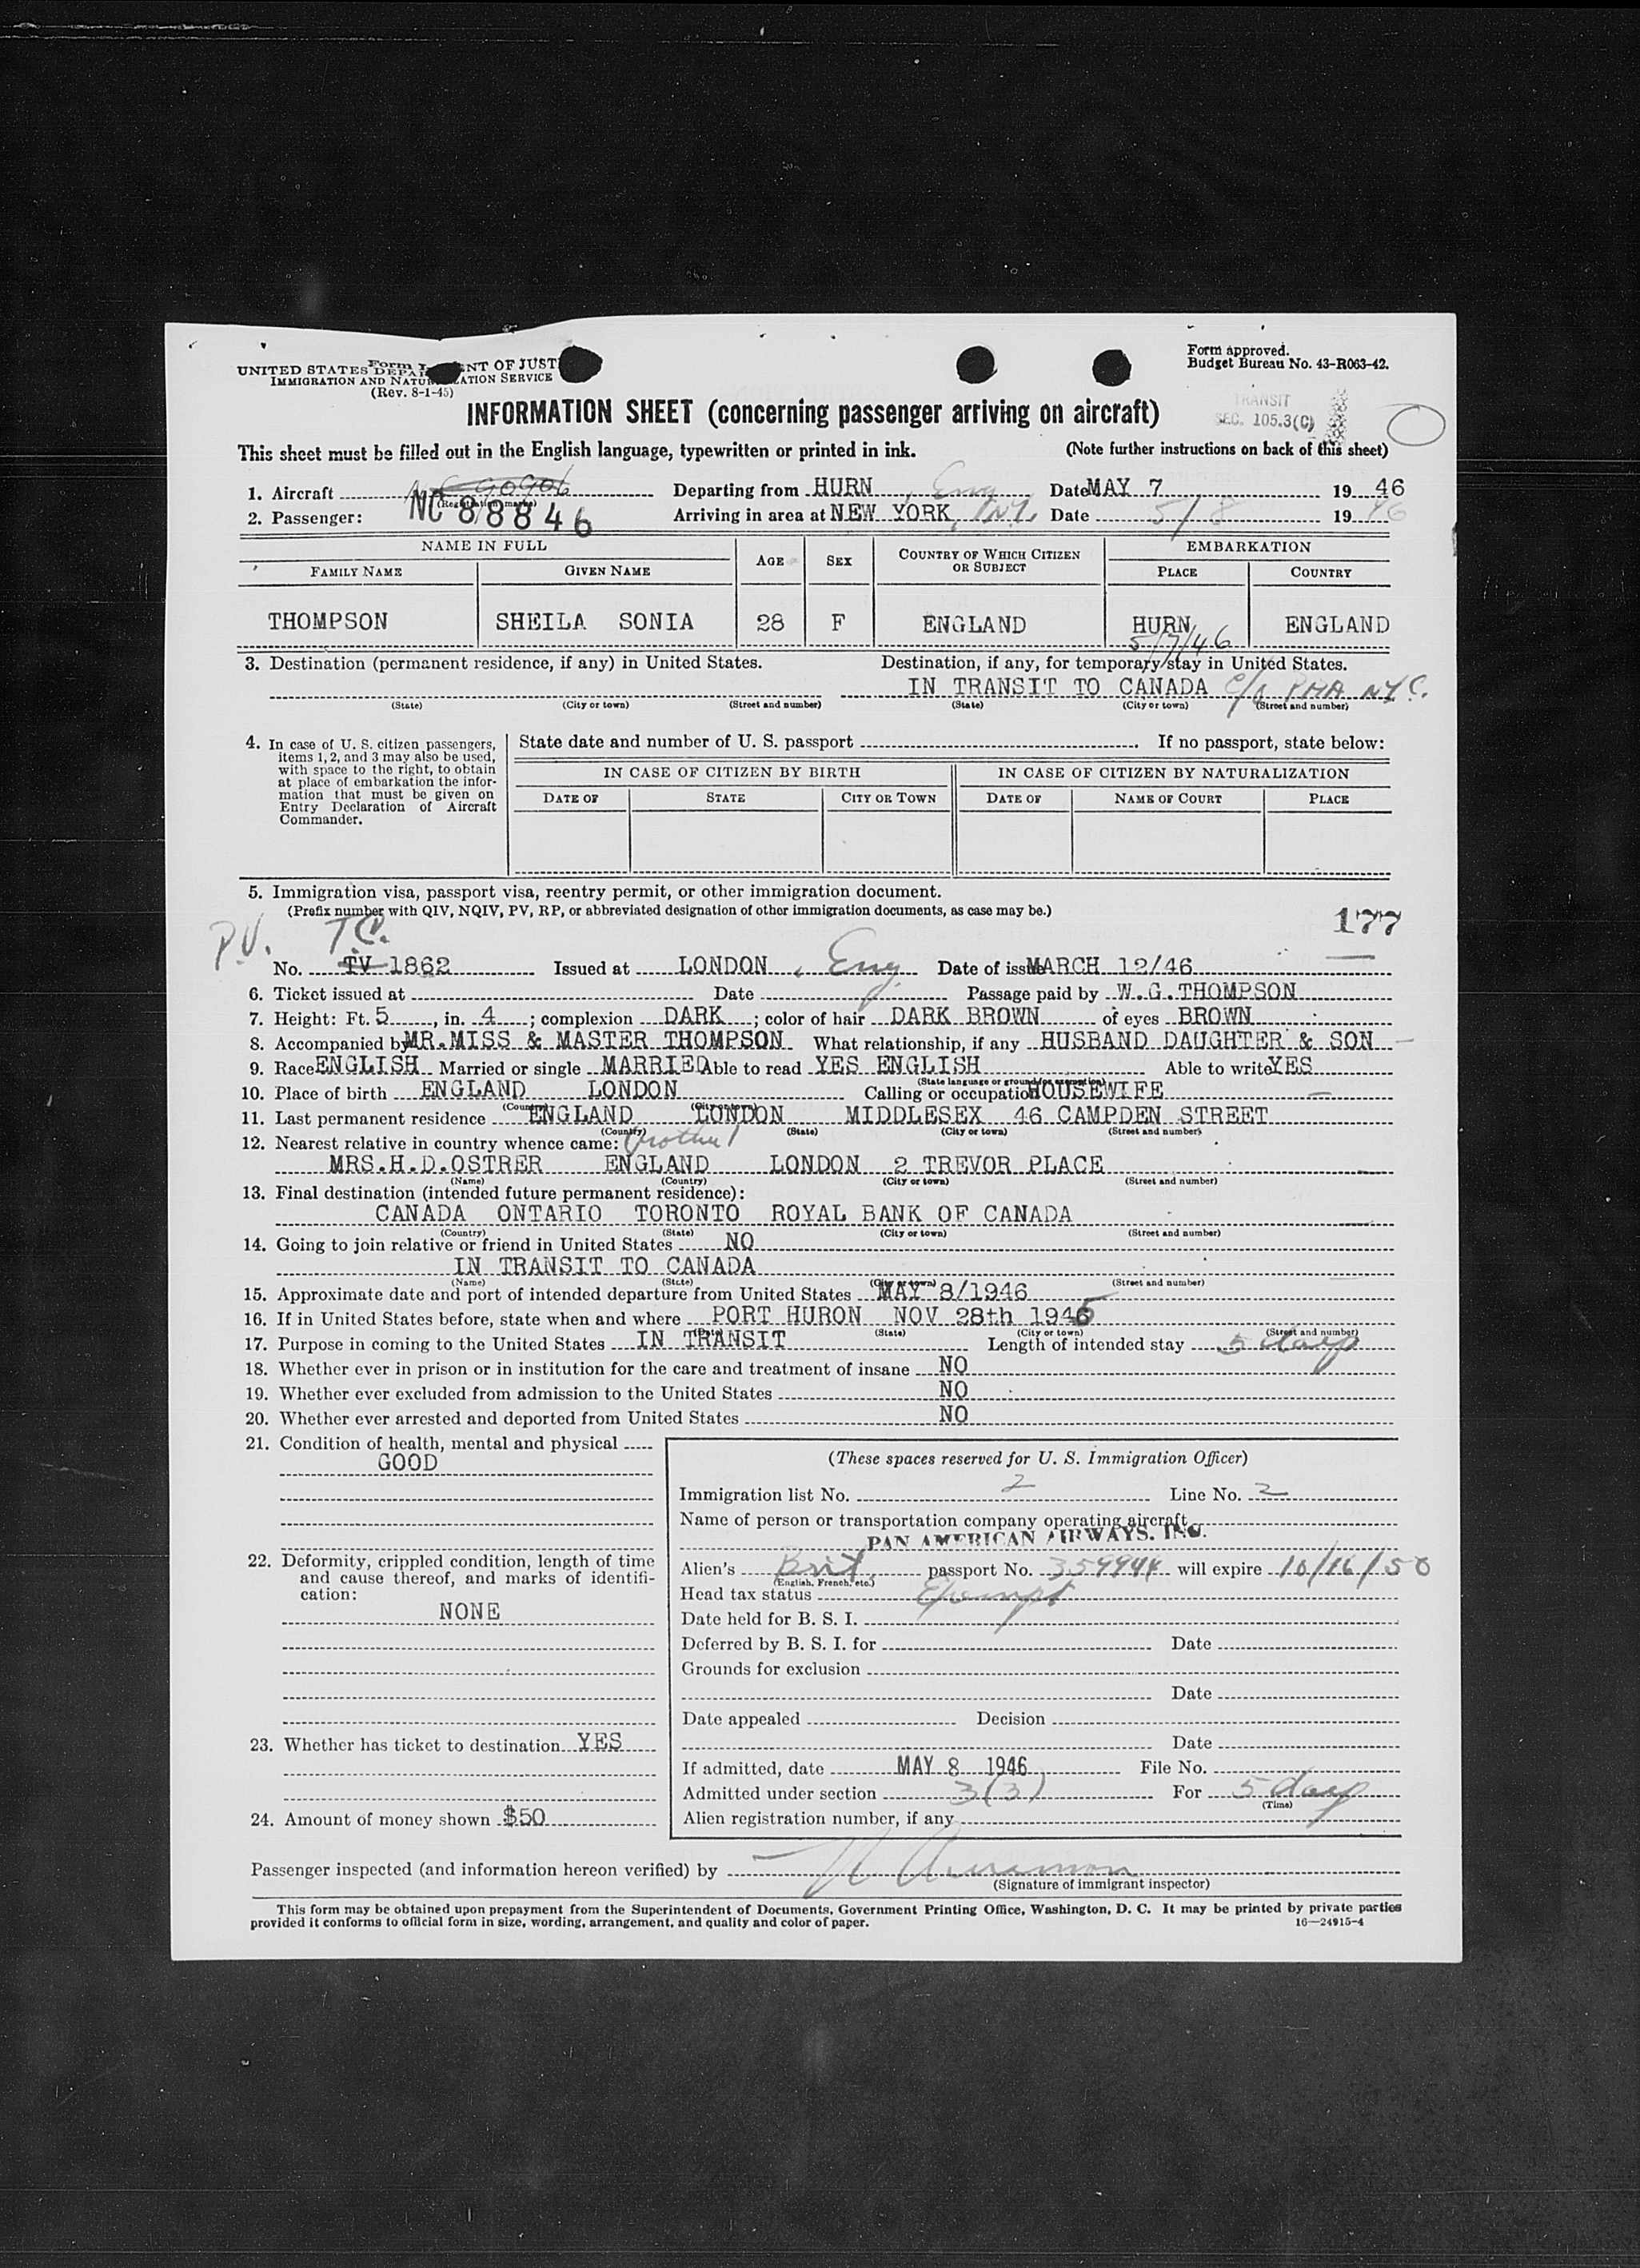 Form I
UNITED STATES DEPARTMENT OF JUST
IMMIGRATION AND NATURALIZATION SERVICE
(Rev. 8-1-45)
Form approved.
Budget Bureau No. 43-R063-42.
INFORMATION SHEET (concerning passenger arriving on aircraft)
TRANSIT
SEC. 105.3(C)
This sheet must be filled out in the English language, typewritten or printed in ink. (Note further instructions on back of this sheet)
1. Aircraft NC 90906 Departing from HURN, Eng Date MAY 7 1946
(Registration marks)
NC 88846
2. Passenger: Arriving in area at NEW YORK, N.Y. Date 5/8 1946
NAME IN FULL AGE SEX COUNTRY OF WHICH CITIZEN OR SUBJECT EMBARKATION
FAMILY NAME GIVEN NAME PLACE COUNTRY
THOMPSON SHEILA SONIA 28 F ENGLAND HURN ENGLAND
5/7/46
3. Destination (permanent residence, if any) in United States. Destination, if any, for temporary stay in United States.
IN TRANSIT TO CANADA c/o PAA NYC.
(State) (City or town) (Street and number) (State) (City or town) (Street and number)
4. In case of U. S. citizen passengers, items 1, 2, and 3 may also be used, with space to the right, to obtain at place of embarkation the information that must be given on Entry Declaration of Aircraft Commander.
State date and number of U. S. passport If no passport, state below:
IN CASE OF CITIZEN BY BIRTH IN CASE OF CITIZEN BY NATURALIZATION
DATE OF STATE CITY OR TOWN DATE OF NAME OF COURT PLACE
5. Immigration visa, passport visa, reentry permit, or other immigration document.
(Prefix number with QIV, NQIV, PV, RP, or abbreviated designation of other immigration documents, as case may be.)
177
P.V. T.C.
No. TV 1862 Issued at LONDON, Eng. Date of issue MARCH 12/46
6. Ticket issued at Date Passage paid by W.G.THOMPSON
7. Height: Ft. 5, in. 4; complexion DARK; color of hair DARK BROWN of eyes BROWN
8. Accompanied by MR.MISS & MASTER THOMPSON What relationship, if any HUSBAND DAUGHTER & SON
9. Race ENGLISH Married or single MARRIED Able to read YES ENGLISH Able to write YES
(State language or ground for exemption)
10. Place of birth ENGLAND LONDON Calling or occupation HOUSEWIFE
(Country) (City or town)
11. Last permanent residence ENGLAND LONDON MIDDLESEX 46 CAMPDEN STREET
(Country) (State) (City or town) (Street and number)
12. Nearest relative in country whence came: (mother)
MRS.H.D.OSTRER ENGLAND LONDON 2 TREVOR PLACE
(Name) (Country) (City or town) (Street and number)
13. Final destination (intended future permanent residence):
CANADA ONTARIO TORONTO ROYAL BANK OF CANADA
(Country) (State) (City or town) (Street and number)
14. Going to join relative or friend in United States NO
IN TRANSIT TO CANADA
(Name) (State) (City or town) (Street and number)
15. Approximate date and port of intended departure from United States MAY 8/1946
16. If in United States before, state when and where PORT HURON NOV 28th 1945
(Date) (State) (City or town) (Street and number)
17. Purpose in coming to the United States IN TRANSIT Length of intended stay 5 days
18. Whether ever in prison or in institution for the care and treatment of insane NO
19. Whether ever excluded from admission to the United States NO
20. Whether ever arrested and deported from United States NO
21. Condition of health, mental and physical
GOOD
22. Deformity, crippled condition, length of time and cause thereof, and marks of identification:
NONE
23. Whether has ticket to destination YES
24. Amount of money shown $50
(These spaces reserved for U. S. Immigration Officer)
Immigration list No. 2 Line No. 2
Name of person or transportation company operating aircraft
PAN AMERICAN AIRWAYS. INC.
Alien's Brit. passport No. 359944 will expire 10/16/50
(English, French, etc.)
Head tax status Exempt
Date held for B. S. I.
Deferred by B. S. I. for Date
Grounds for exclusion
Date
Date appealed Decision
Date
If admitted, date MAY 8 1946 File No.
Admitted under section 3(3) For 5 days
(Time)
Alien registration number, if any
Passenger inspected (and information hereon verified) by
(Signature of immigrant inspector)
This form may be obtained upon prepayment from the Superintendent of Documents, Government Printing Office, Washington, D. C. It may be printed by private parties
provided it conforms to official form in size, wording, arrangement, and quality and color of paper. 16—24915-4